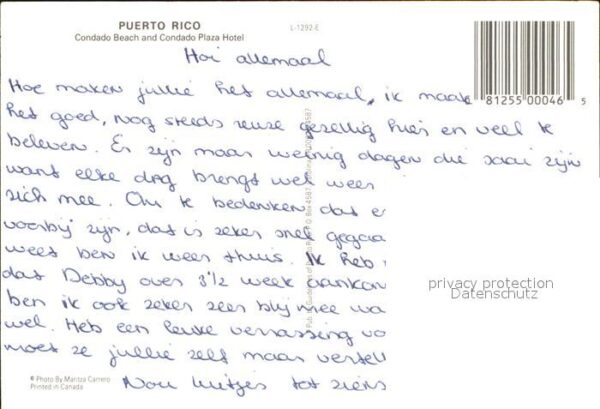 PUERTO RICO
Condado Beach and Condado Plaza Hotel
L-1292-E
Hoi allemaal
Hoe maken jullie het allemaal, ik maak
81255 00046 5
het goed, nog steeds reuze gezellig hier en veel te
beleven. Er zijn maar weinig dagen die saai zijn
want elke dag brengt wel weer
zich mee. Om te bedenken dat e
voorbij zijn, dat is zeker snel gegaa
weet ben ik weer thuis. Ik heb
dat Debby over 3 1/2 week aankom
ben ik ook zeker zeer blij mee wa
wel. Heb een leuke verrassing vo
moet ze jullie zelf maar vertell
Nou luitjes tot ziens
privacy protection
Datenschutz
© Photo By Maritza Carrero
Printed in Canada